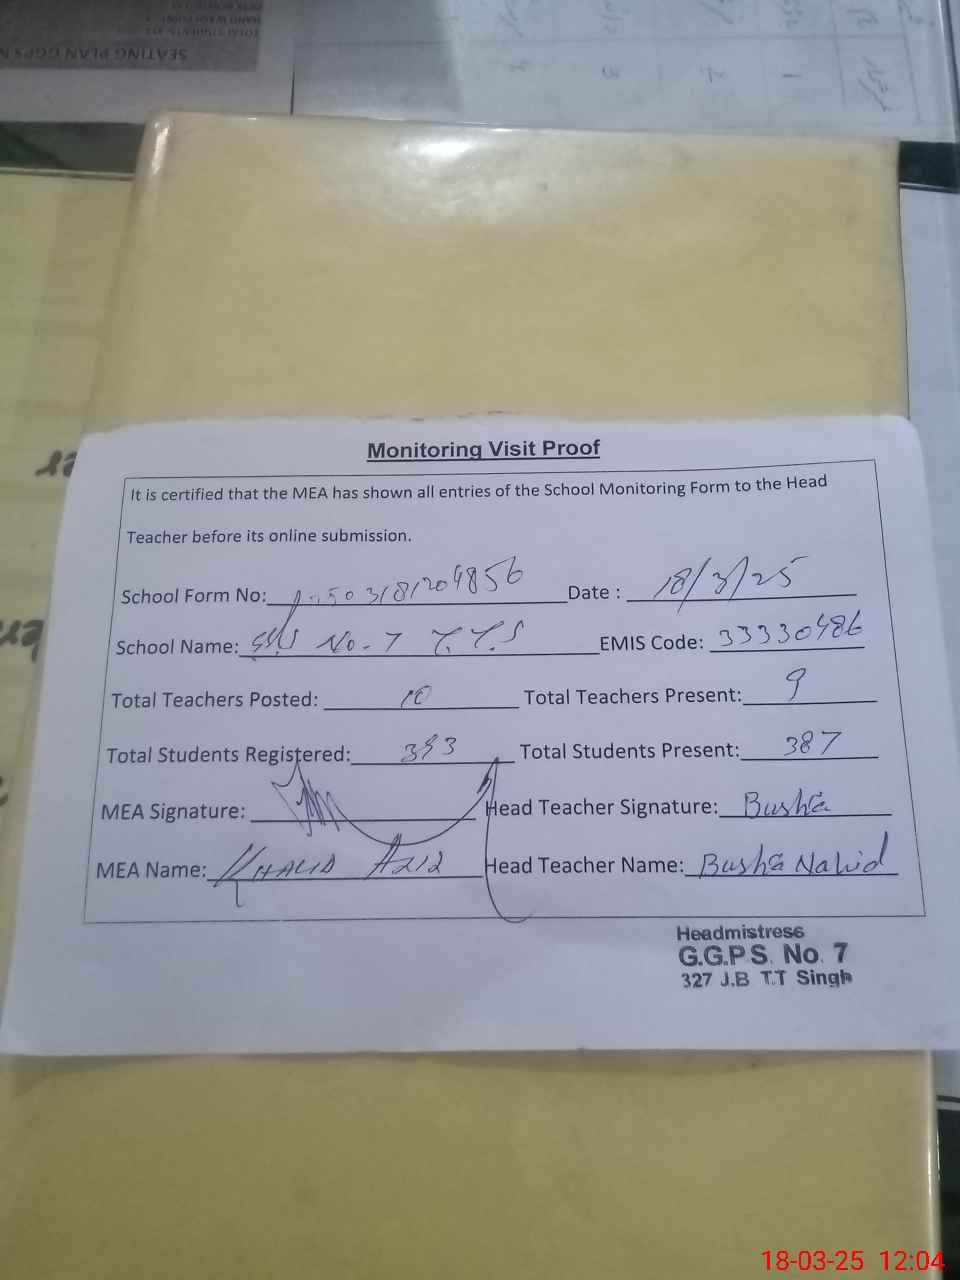 SEATING PLAN GGPS N
Monitoring Visit Proof
It is certified that the MEA has shown all entries of the School Monitoring Form to the Head
Teacher before its online submission.
School Form No: Date : 18/3/25
School Name: No-7 T.T.S EMIS Code: 33330486
Total Teachers Posted: 10 Total Teachers Present: 9
Total Students Registered: 393 Total Students Present: 387
MEA Signature: Head Teacher Signature: Bushra
MEA Name: KHALID AZIZ Head Teacher Name: Bushra Nahid
Headmistress
G.G.P.S. No. 7
327 J.B T.T Singh
18-03-25 12:04